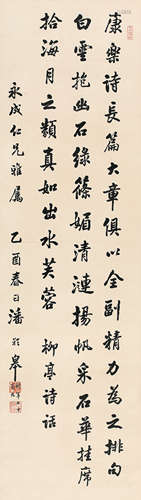 康樂詩長篇大章俱以全副精力為之排句
白雲抱幽石綠篠媚清漣揚帆采石華挂席
拾海月之類真如出水芙蓉　柳亭詩話
永成仁兄雅屬　乙酉春日潘齡皋